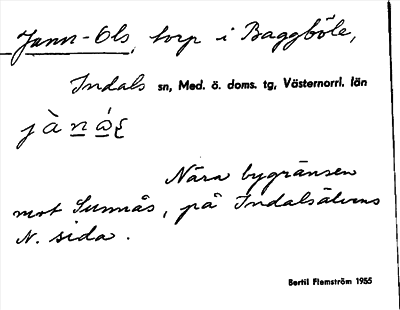 Jann-Ols, torp i Baggböle,
Indals sn, Med. ö. doms. tg, Västernorrl. län
Nära bygränsen
mot Sunnås, på Indalsälvens
N. sida.
Bertil Flemström 1955